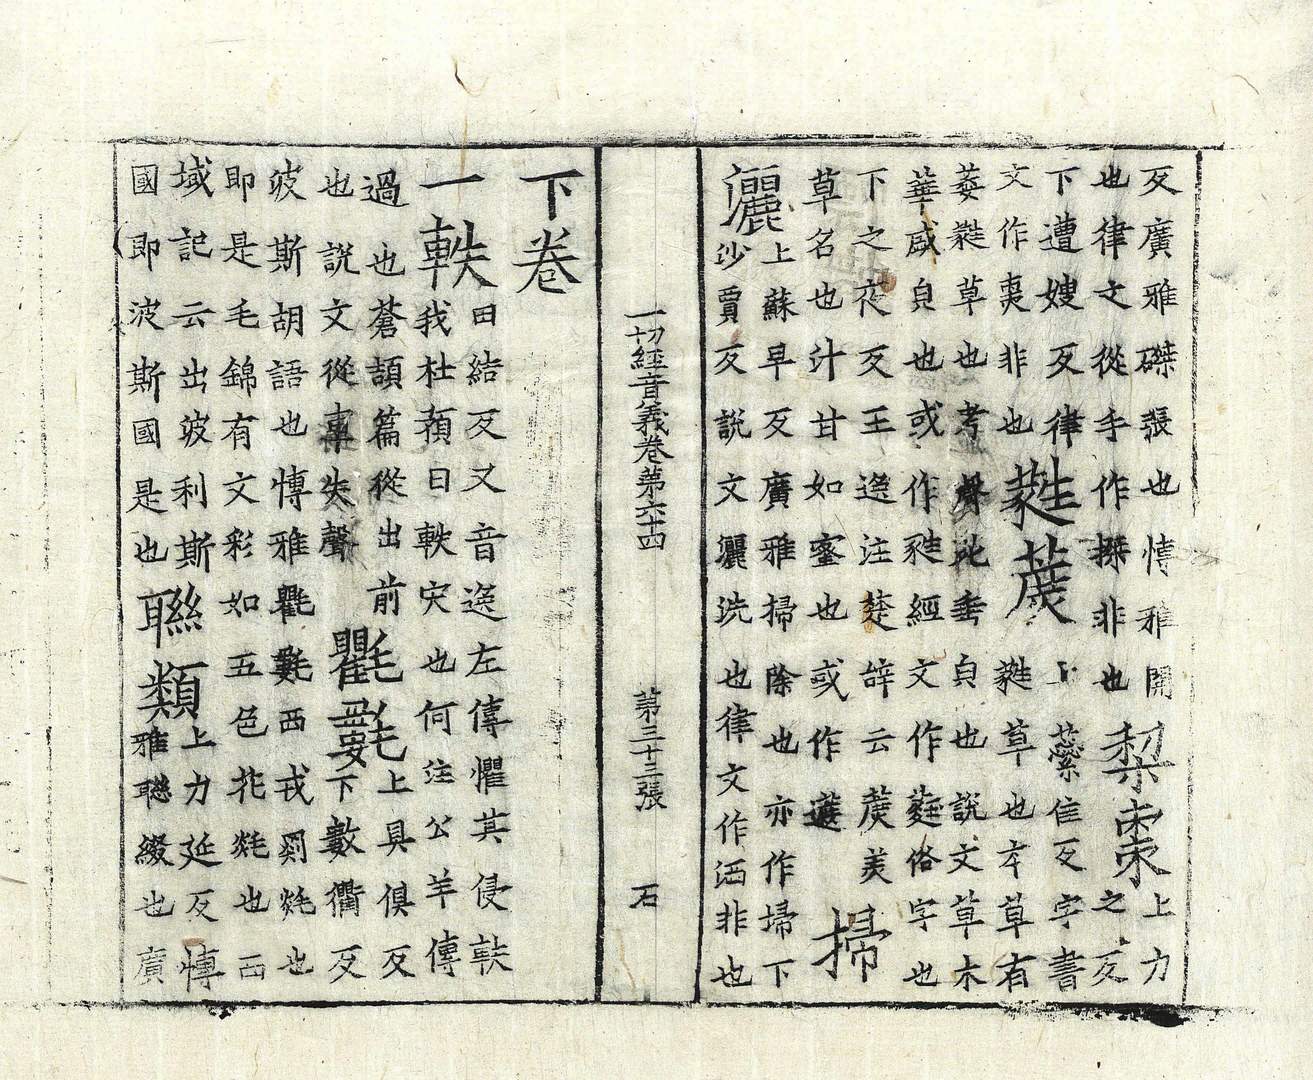 反廣雅磔張也愽雅開
也律文從手作搩非也
梨棗
上力
之反
下遭嫂反律
文作棗非也
蕤蔗
上蘂隹反字書
蕤草也本草有
萎蕤草也考聲艸垂皃也說文草木
華盛皃也或作甤經文作蕤俗字也
下之夜反王逸注楚辭云蔗美
草名也汁甘如蜜也或作䗪
掃
灑
上蘇早反廣雅掃除也亦作埽下
沙賈反說文灑洗也律文作洒非也
一切經音義卷第六十四 第三十三張 石
下卷
一軼
曰結反又音逸左傳懼其侵軼
我杜預曰軼突也何注公羊傳
過也蒼頡篇從出前
也說文從車失聲
氍毹
上具俱反
下數衢反
波斯胡語也愽雅氍毹西戎罽毹也
即是毛錦有文彩如五色花毹也西
域記云出波利斯
國即波斯國是也
聯類
上力延反愽
雅聯綴也廣